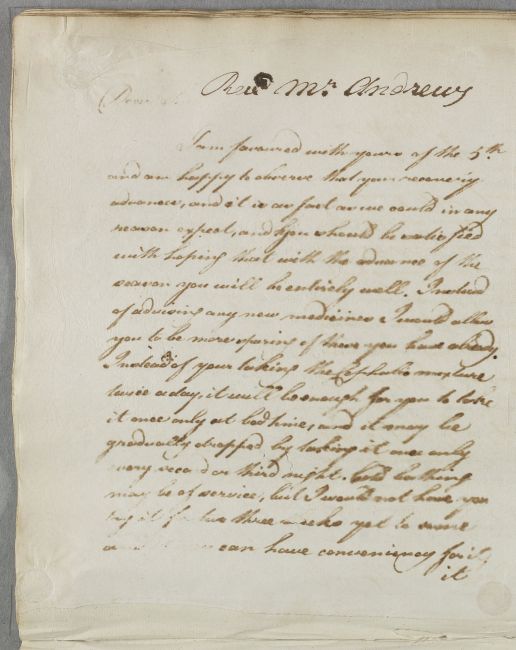 Revd Mr. Andrews
Dear
I am favoured with yours of the 5th
and am happy to observe that your recovery
advances, and it is as fast as we could in any
reason expect, and you should be satisfied
with hoping that with the advance of the
season you will be entirely well. Instead
of advising any new medicines I would allow
you to be more sparing of these you have already.
Instead of your taking the Cephalic mixture
twice a day, it will be enough for you to take
it once only at bedtime, and it may be
gradually dropped by taking it once only
every second or third night. Cold bathing
may be of service, but I would not have you
try it for two three weeks yet to come
can have conveniency for it,
it